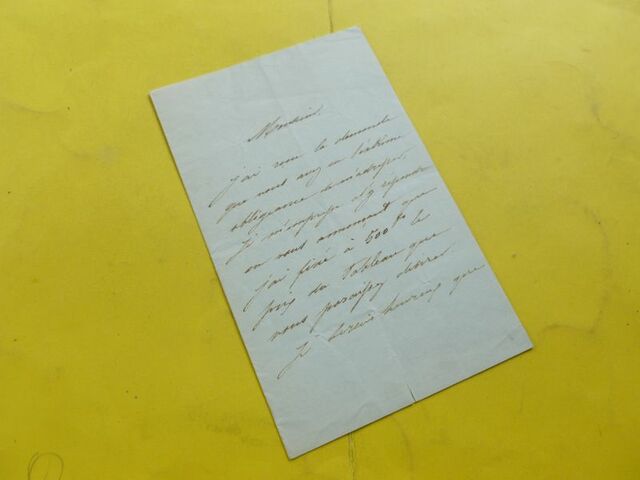 Monsieur,
j'ai reçu la demande
que vous avez eu l'extrème
obligeance de m'adresser,
je m'empresse d'y répondre
en vous annonçant que
j'ai fixé à 500 f le
prix du Tableau que
vous paraissez désirer
Je serais heureux que